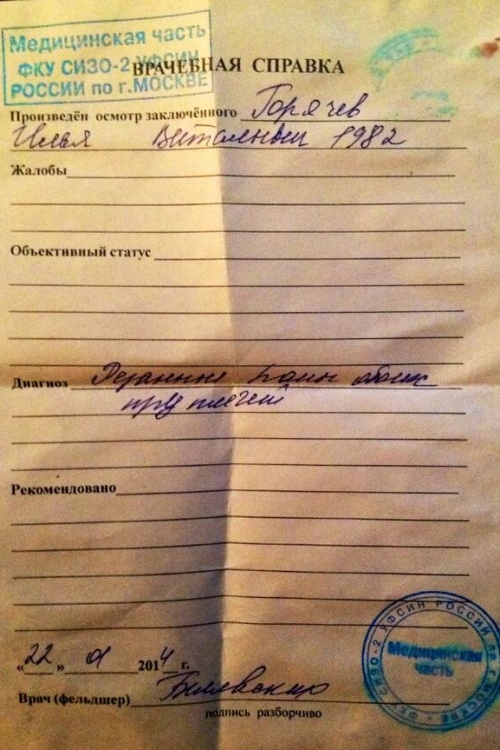 Медицинская часть
ФКУ СИЗО-2 УФСИН
РОССИИ по г.МОСКВЕ
ВРАЧЕБНАЯ СПРАВКА
Произведён осмотр заключённого Горячев
Илья Витальевич 1982
Жалобы
Объективный статус
Диагноз Резанные раны обоих
предплечий
Рекомендовано
«22» 2014 г.
Врач (фельдшер)
подпись разборчиво
ФКУ СИЗО-2 УФСИН РОССИИ по г. МОСКВЕ
Медицинская
часть